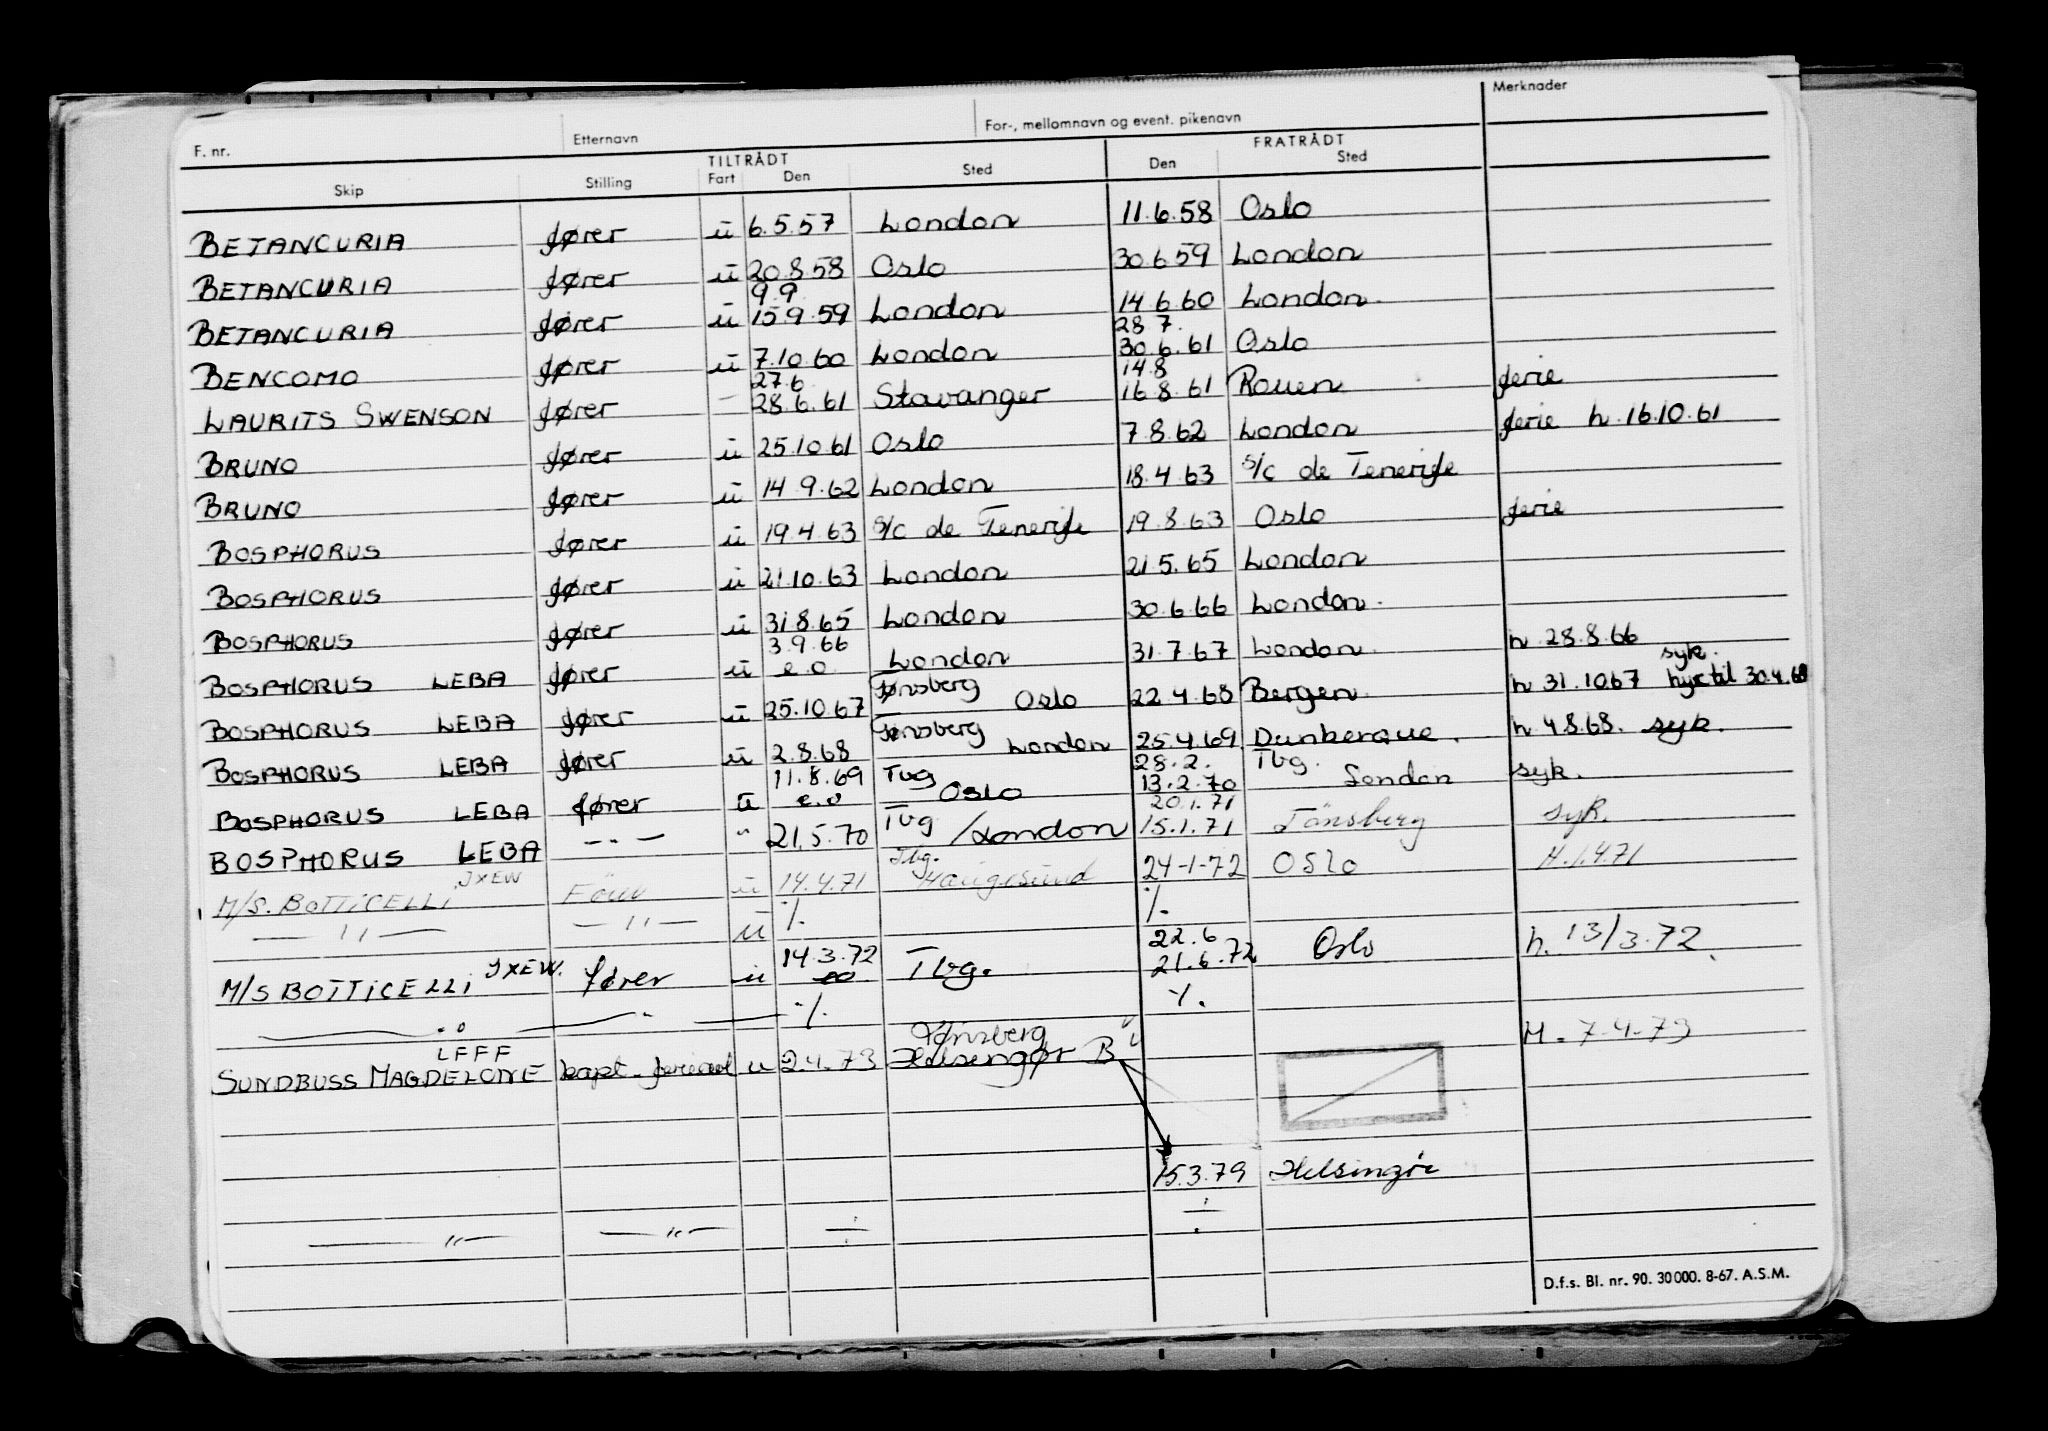 Merknader
F. nr. Etternavn For-, mellomnavn og event. pikenavn
TILTRÅDT FRATRÅDT
Skip Stilling Fart Den Sted Den Sted
BETANCURIA fører ū 6.5.57 London 11.6.58 Oslo
BETANCURIA fører ū 20.8.58 Oslo 30.6.59 London
9.9
BETANCURIA fører ū 15.9.59 London 14.6.60 London.
28.7.
BENCOMO fører ū 7.10.60 London 30.6.61 Oslo
27.6 14.8
LAURITS SWENSON fører – 28.6.61 Stavanger 16.8.61 Rouen ferie
BRUNO fører ū 25.10.61 Oslo 7.8.62 London ferie h. 16.10.61
BRUNO fører ū 14.9.62 London 18.4.63 S/C de Tenerife
BOSPHORUS fører ū 19.4.63 S/C de Tenerife 19.8.63 Oslo ferie
BOSPHORUS fører ū 21.10.63 London 21.5.65 London
BOSPHORUS fører ū 31.8.65 London 30.6.66 London.
3.9.66
BOSPHORUS LEBA fører ū e.o. London 31.7.67 London. h 28.8.66
Tønsberg syk.
BOSPHORUS LEBA fører ū 25.10.67 Oslo 22.4.68 Bergen. h 31.10.67 hyre til 30.4.68
Tønsberg
BOSPHORUS LEBA fører ū 2.8.68 London 25.4.69 Dunkerque. h 4.8.68. syk.
11.8.69 Tbg 28.2. Tbg.
BOSPHORUS LEBA fører ū e.o Oslo 13.2.70 London syk.
Tbg 20.1.71
BOSPHORUS LEBA –"– " 21.5.70 /London 15.1.71 Tönsberg syk.
JXEW Tbg.
M/S. BOTTICELLI ū 14.4.71 Haugesund 24-1-72 OSLO H.1.4.71
–"– –"– ū ⁒ ⁒
JXEW. 14.3.72 22.6
M/S BOTTICELLI fører ū eo Tbg. 21.6.72 Oslo h. 13/3.72.
–"– –"– ⁒ ⁒
LFFF Tønsberg
SUNDBUSS MAGDELONE kapt. u 2.4.73 Helsingør B H. 7-4-73
15.3.79 Helsingør
–"– –"– ÷ ÷
D.f.s. Bl. nr. 90. 30 000. 8-67. A.S.M.